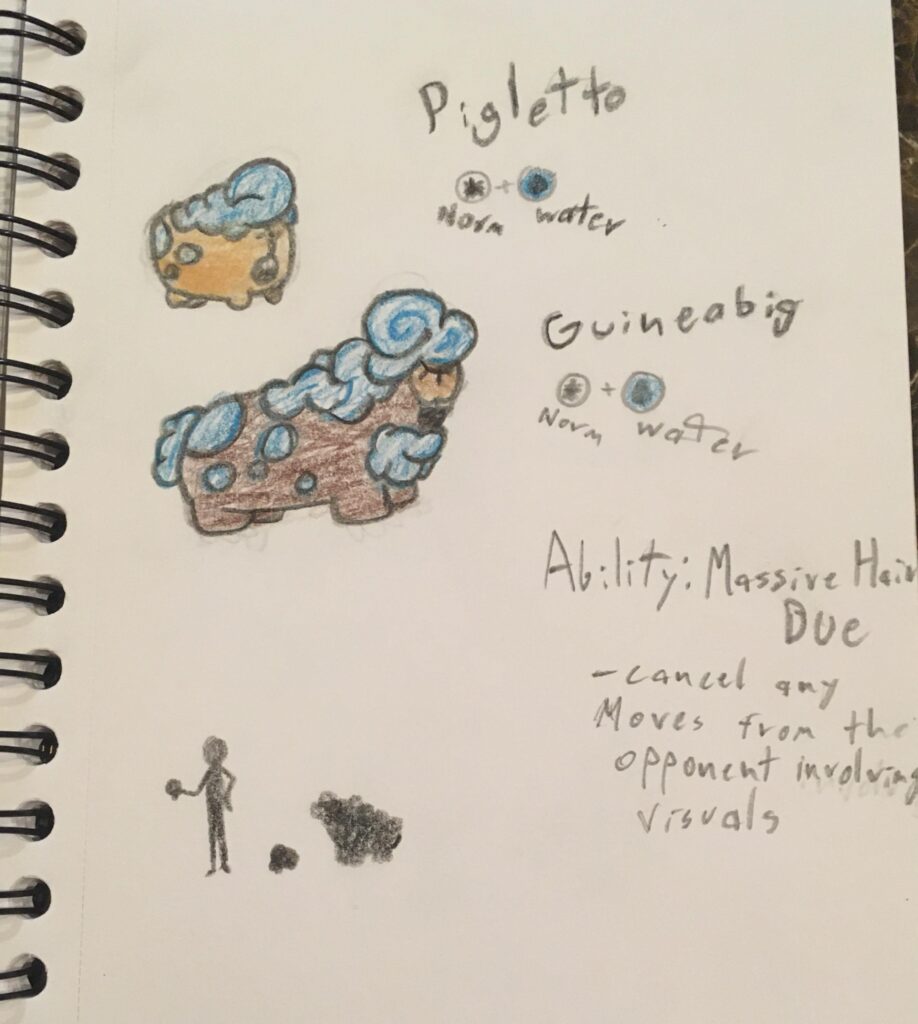 Pigletto
+
Norm water
Guineabig
+
Norm water
Ability: Massive Hair
Due
- cancel any
Moves from the
opponent involving
visuals